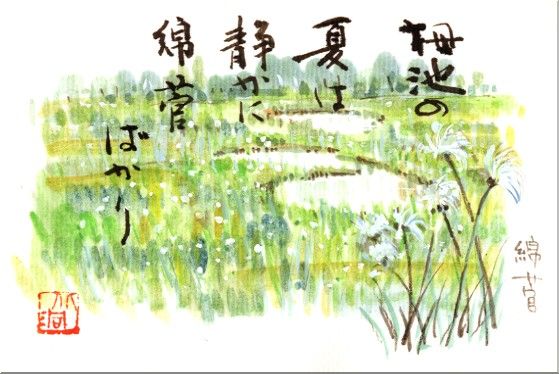 栂池の
夏は
静かに
綿菅
ばかり
綿菅